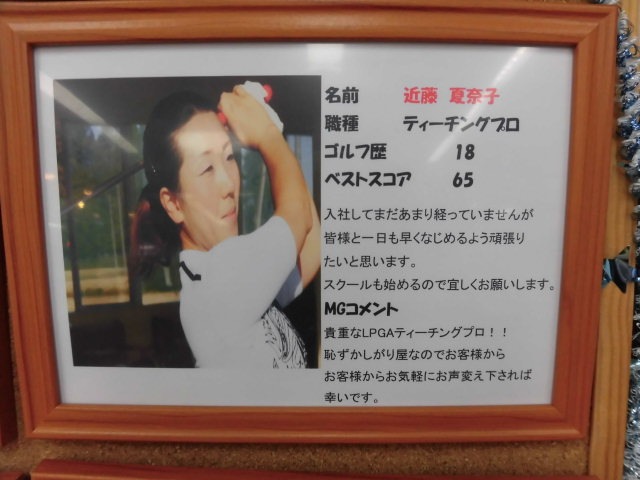 名前 近藤 夏奈子
職種 ティーチングプロ
ゴルフ歴 18
ベストスコア 65
入社してまだあまり経っていませんが
皆様と一日も早くなじめるよう頑張り
たいと思います。
スクールも始めるので宜しくお願いします。
MGコメント
貴重なLPGAティーチングプロ！！
恥ずかしがり屋なのでお客様から
お客様からお気軽にお声変え下されば
幸いです。